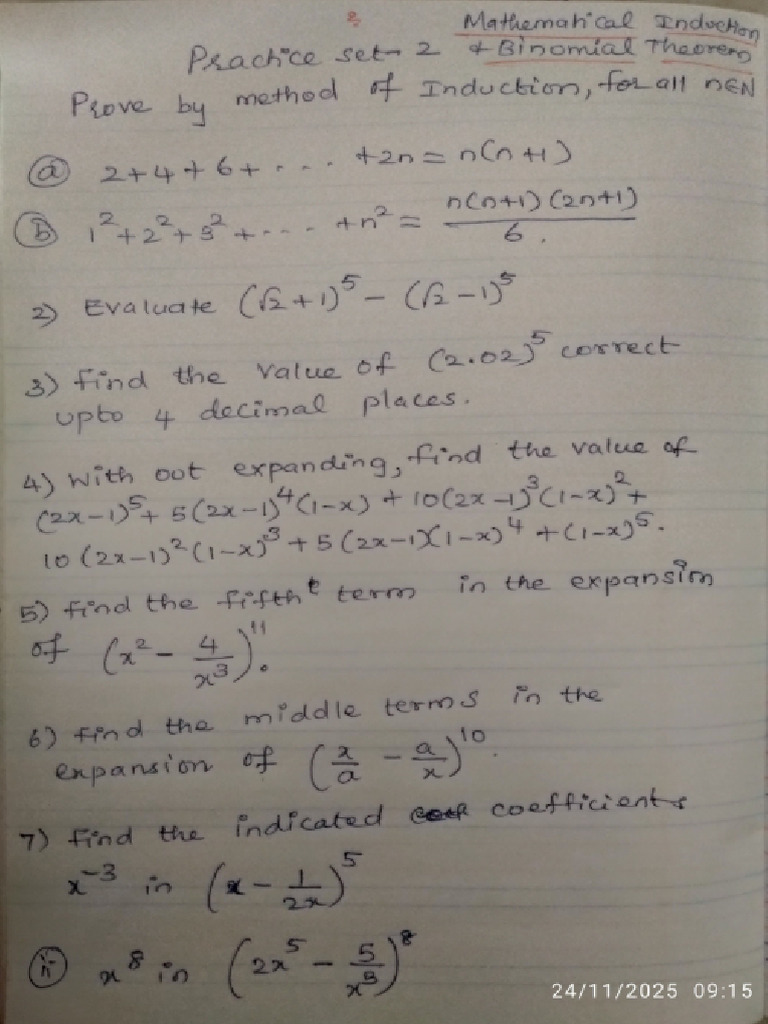 Mathematical Induction
Practice set- 2 & Binomial Theorem
Prove by method of Induction, for all n∈N
(a) 2+4+6+ .... +2n = n(n+1)
(b) 1²+2²+3²+.... +n² = n(n+1)(2n+1)/6.
2) Evaluate (√2+1)⁵ – (√2 –1)⁵
3) find the value of (2.02)⁵ correct
upto 4 decimal places.
4) With out expanding, find the value of
(2x–1)⁵+ 5(2x–1)⁴(1–x) + 10(2x–1)³(1–x)²+
10 (2x–1)²(1–x)³ + 5(2x–1)(1–x)⁴ +(1–x)⁵.
5) find the fifth term in the expansion
of (x² – 4/x³)¹¹.
6) find the middle terms in the
expansion of (x/a – a/x)¹⁰.
7) find the indicated coefficients
x⁻³ in (x – 1/2x)⁵
(ii) x⁸ in (2x⁵ – 5/x³)⁸
24/11/2025 09:15